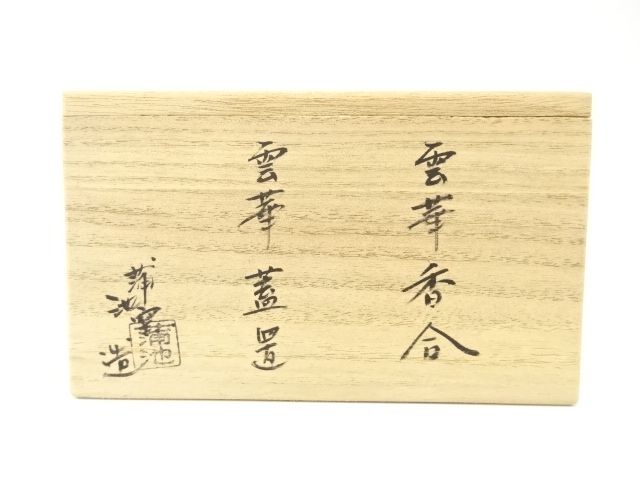 雲華香合
雲華蓋置
蒲池窯造
蒲池